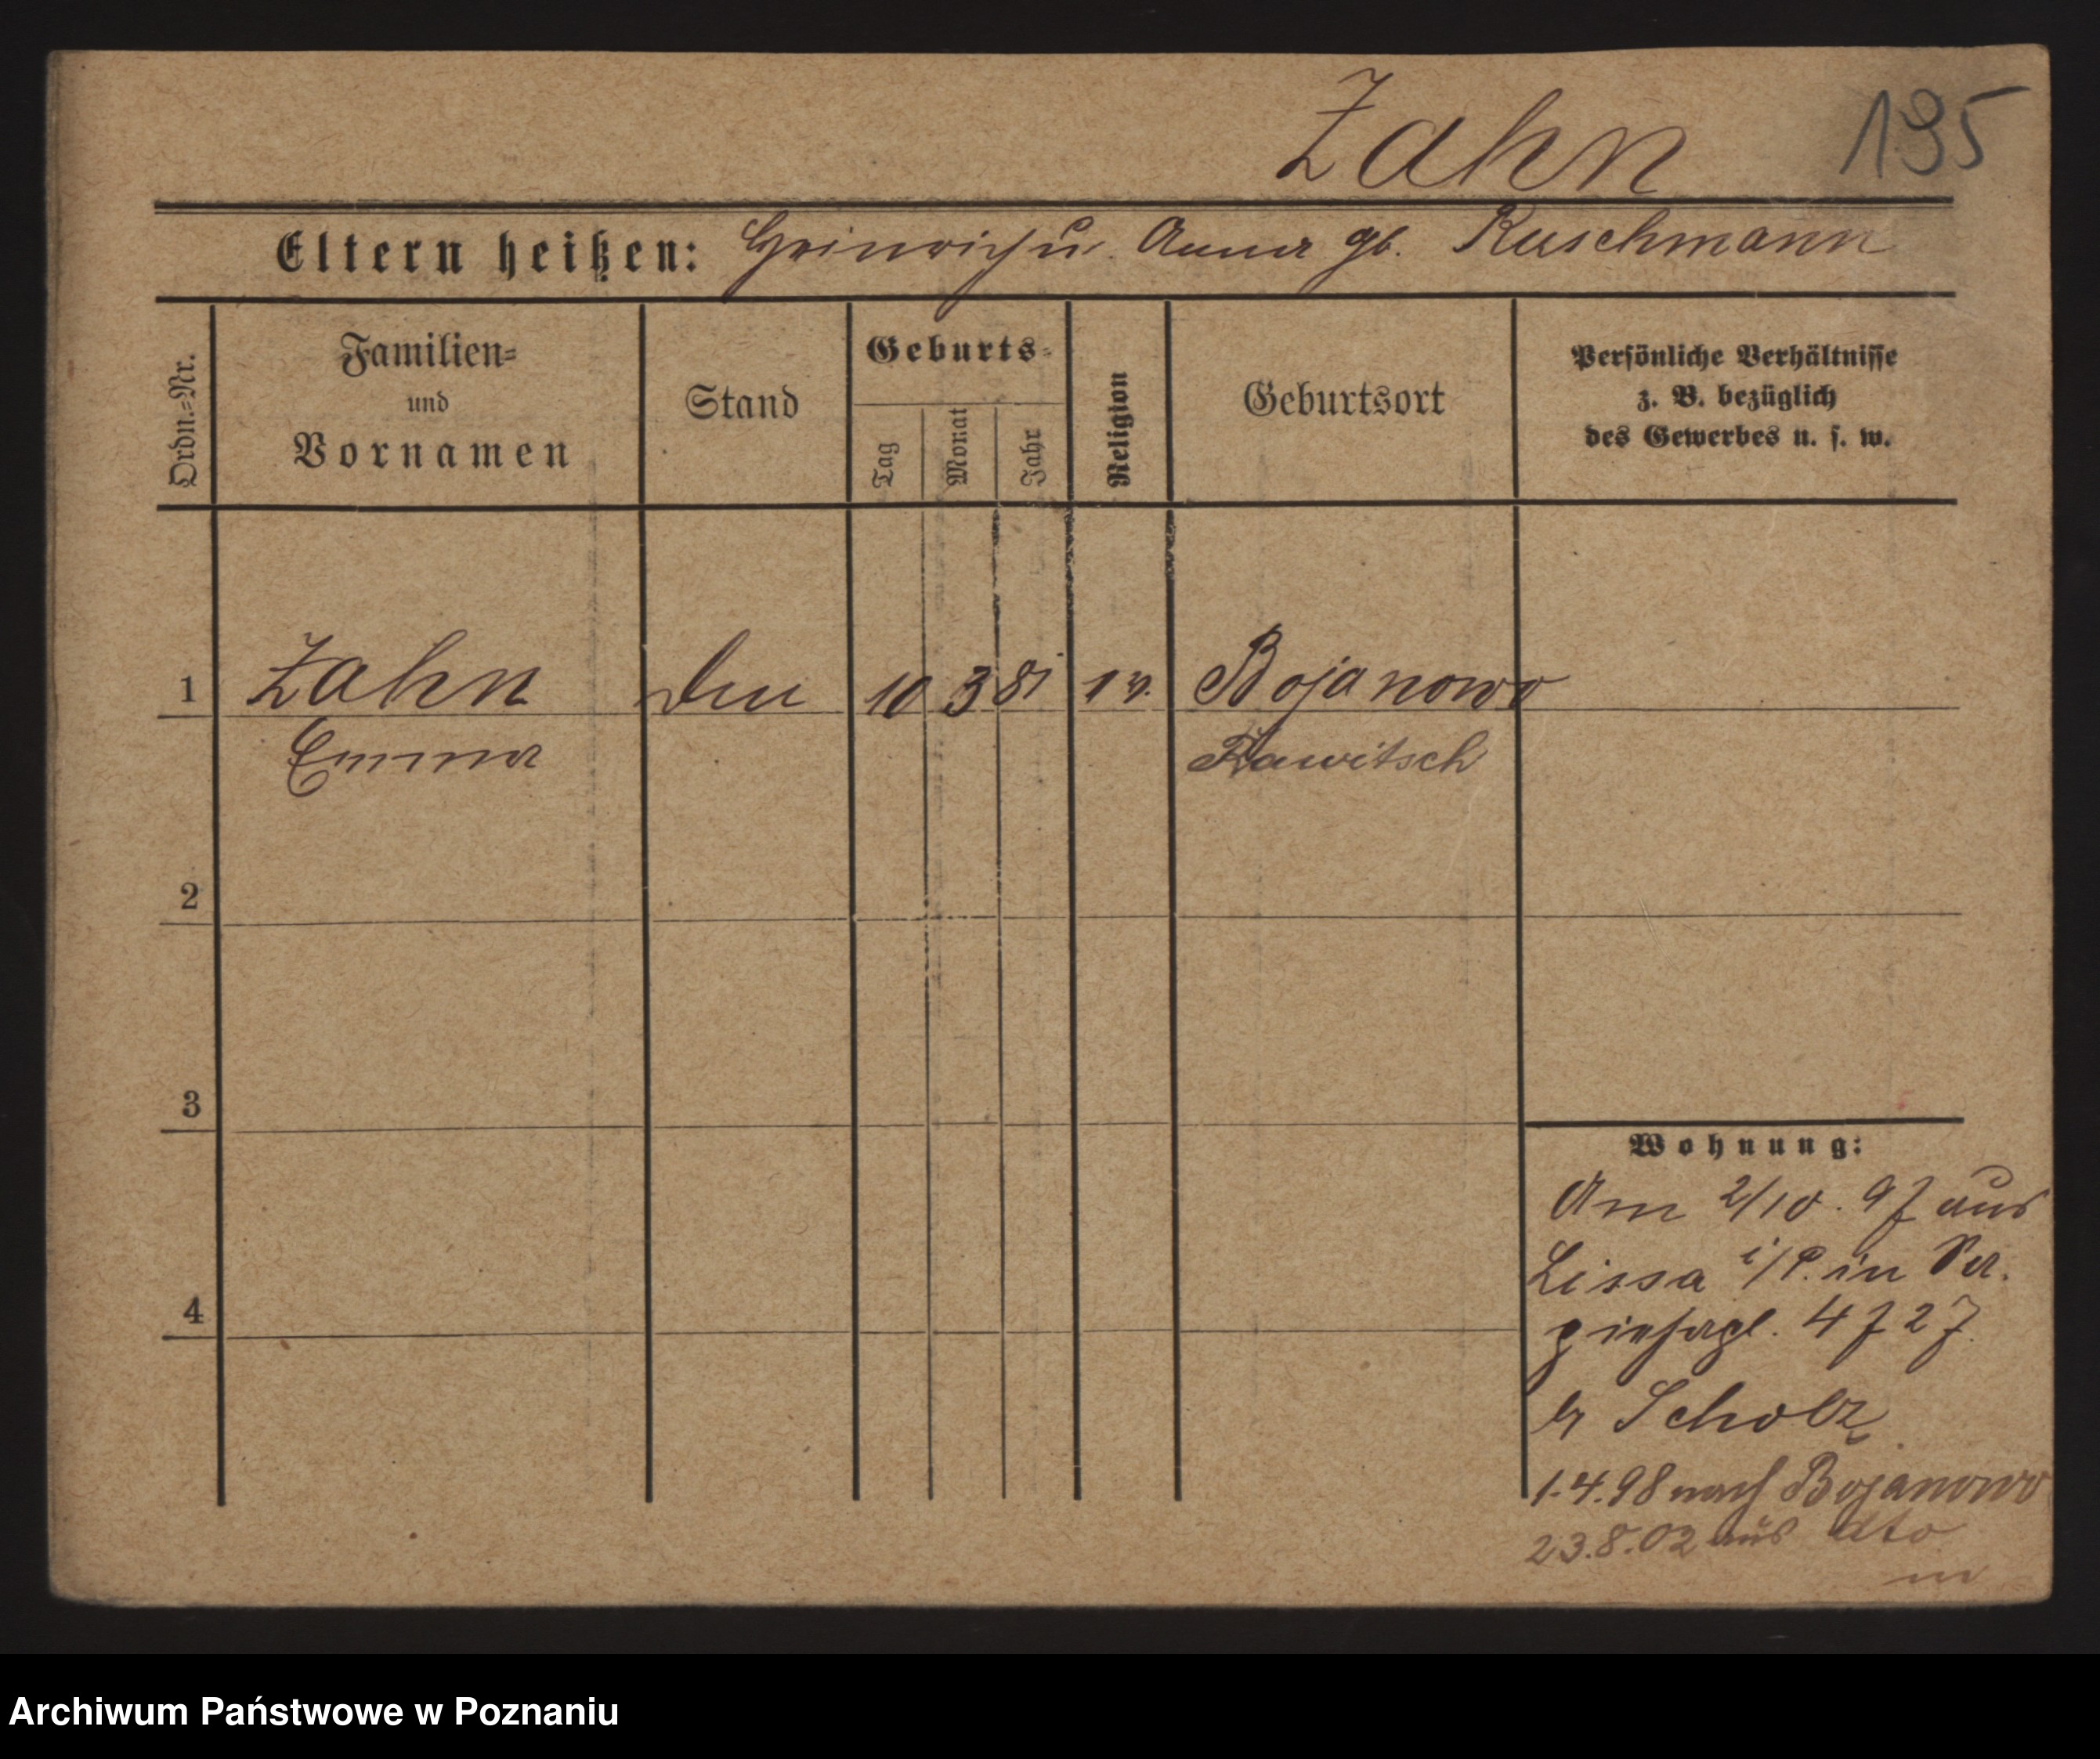 Zahn 195
Eltern heißen: Heinrich u. Anna gb. Ruschmann
Ordn.-Nr.
Familien-
und
Vornamen
Stand
Geburts-
Tag
Monat
Jahr
Religion
Geburtsort
Persönliche Verhältnisse
z. B. bezüglich
des Gewerbes u. s. w.
1 Zahn 10 3 81 Bojanowo
Emma Rawitsch
2
3
4
Wohnung:
Am 2/10. 97 aus
Lissa i/P. in
4727
Scholz
1.4.98 nach Bojanowo
23.8.02 aus dto
Archiwum Państwowe w Poznaniu